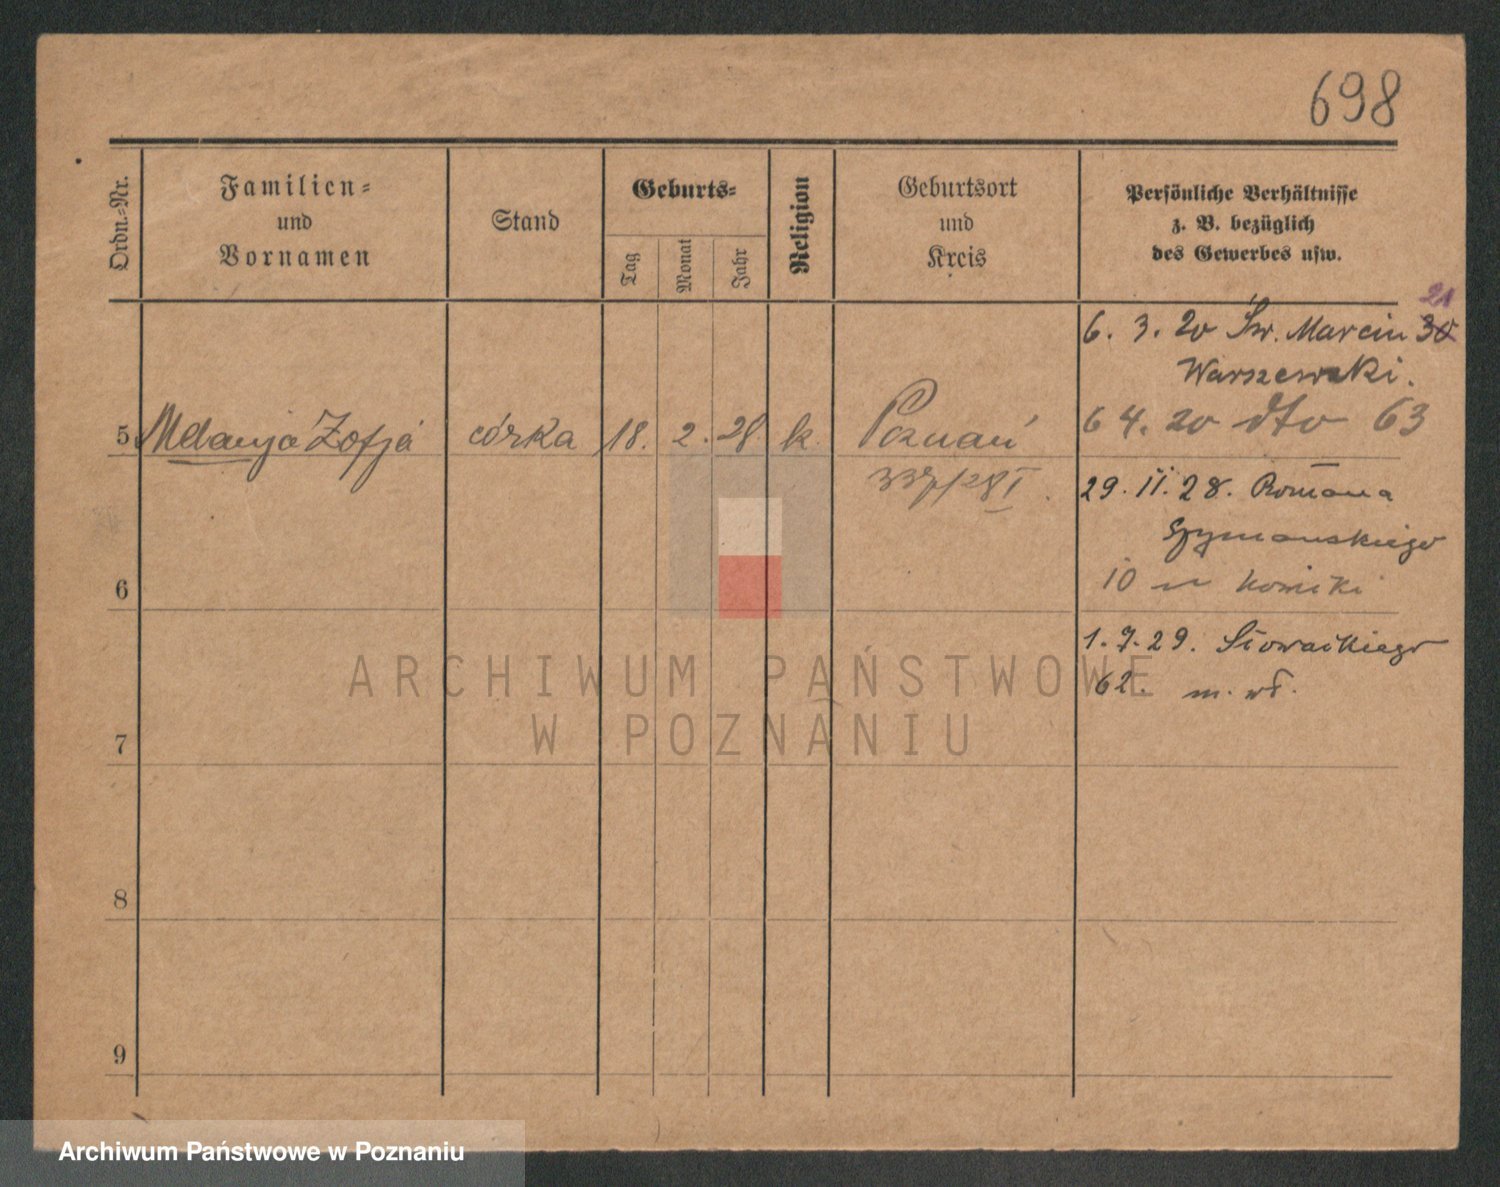 698
Ordn.-Nr.
Familien-
und
Vornamen
Stand
Geburts-
Tag
Monat
Jahr
Religion
Geburtsort
und
Kreis
Persönliche Verhältnisse
z. B. bezüglich
des Gewerbes usw.
21
6. 3. 20 Św. Marcin 30
Warszewski.
5 Melanja Zofja córka 18. 2. 28 k. Poznań 6 4. 20 dto 63
337/28 I 29. II. 28. Romana
Szymańskiego
6 10
1. 7. 29. Słowackiego
62. m. wł.
ARCHIWUM PAŃSTWOWE
W POZNANIU
7
8
9
Archiwum Państwowe w Poznaniu